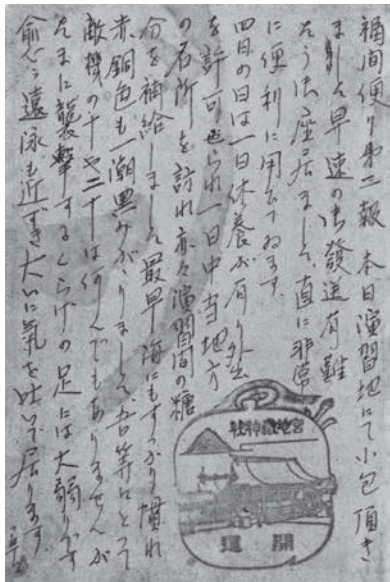 福間便り第二報 本日演習地にて小包頂き
ました早速の御發送有難
たう御座居ました直に非常
に便利に用ひてゐます。
四日の日は一日休養が有り外出
を許可せられ一日中当地方
の名所を訪れ亦々演習間の糖
分を補給しました最早海にもすつかり慣れ
赤銅色も一潮黒みがゝりました吾等にとって
敵機の十や二十は何んでもありませんが
たまに襲撃するくらげの足には大弱りです
愈々遠泳も近ずき大いに氣を吐いて居ります。
宮地嶽神社
開運